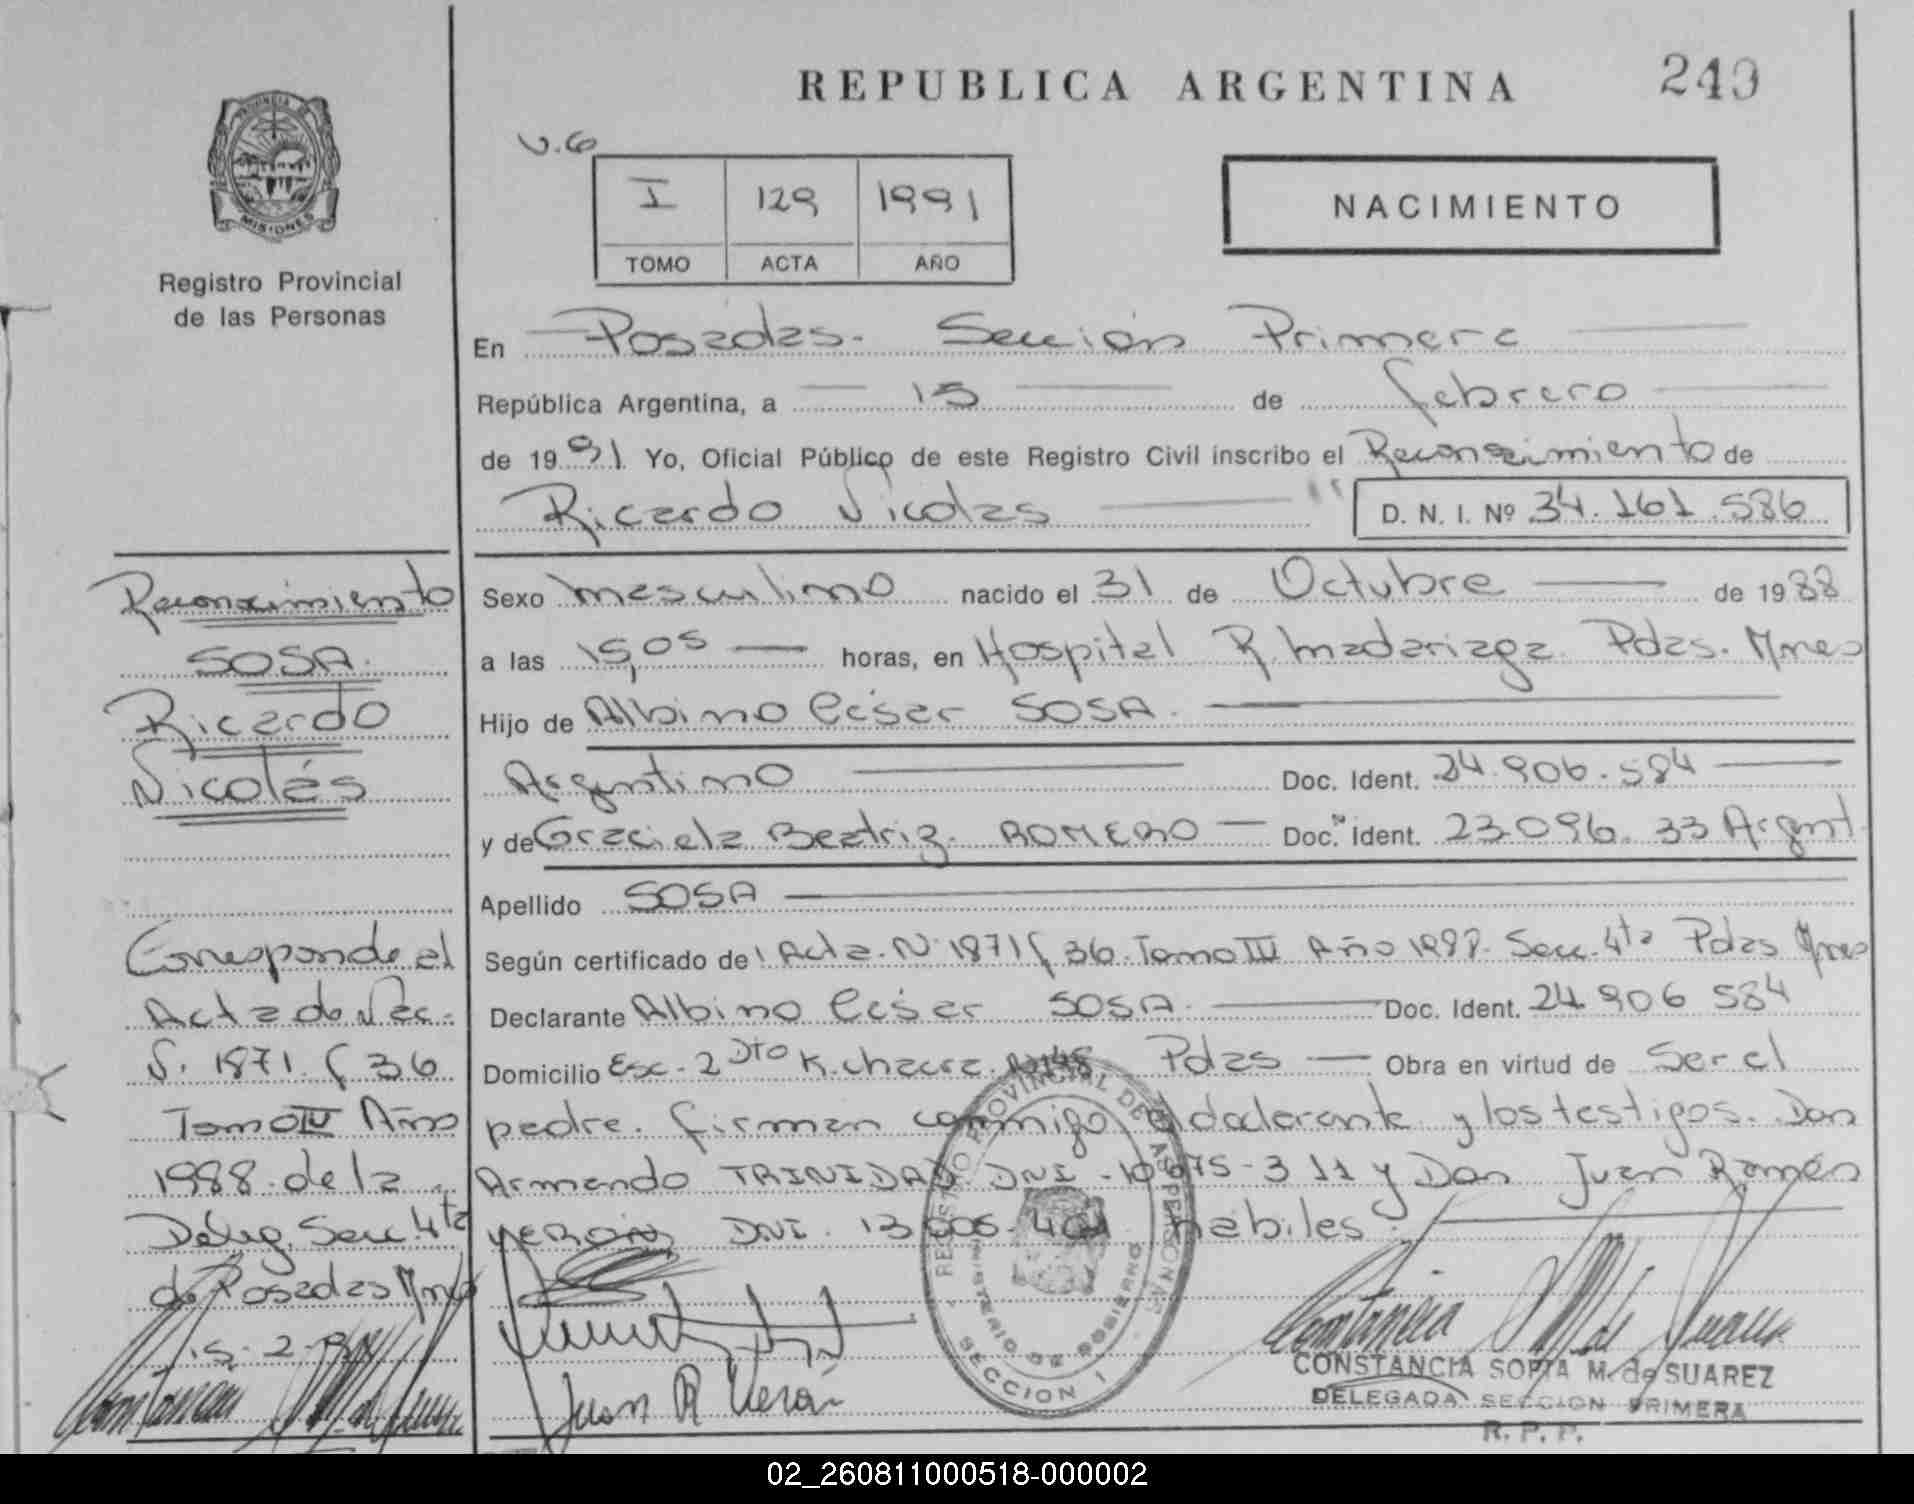 REPUBLICA ARGENTINA
249
PROVINCIA DE
MISIONES
Registro Provincial
de las Personas
V.6
I 129 1991
TOMO ACTA AÑO
NACIMIENTO
En Posadas. Sección Primera
República Argentina, a 15 de febrero
de 1991 Yo, Oficial Público de este Registro Civil inscribo el Reconocimiento de
Ricardo Nicolas D. N. I. Nº 34.161.586
Sexo masculino nacido el 31 de Octubre de 1988
a las 15,05 horas, en Hospital R. Madariaga. Pdas. Mnes
Hijo de Albino César SOSA.
Argentino Doc. Ident. 24.906.584
y de Graciela Beatriz. ROMERO Doc. Ident. 23.096.33 Argent.
Apellido SOSA
Según certificado de Acta. N. 1871 f 36. Tomo IV Año 1988. Secc. 4ta Pdas Mnes
Declarante Albino César SOSA. Doc. Ident. 24.906 584
Domicilio Esc. 2 Dto K. chacra. Nº 148 Pdas Obra en virtud de Ser el
padre. firman conmigo el declarante y los testigos. Don
Armando TRINIDAD. DNI - 10.675-311 y Don Juan Ramón
VERON DNI. 13.005-401 habiles.
Reconocimiento
SOSA.
Ricardo
Nicolás
Corresponde al
Acta de Nac.
N. 1871. f 36
Tomo IV Año
1988. de la
Deleg. Secc. 4ta
de Posadas Mnes
15-2-991
Juan R Verón
REGISTRO PROVINCIAL DE LAS PERSONAS
MINISTERIO DE GOBIERNO
SECCION I
Constancia S M. de Suarez
CONSTANCIA SOFIA M. de SUAREZ
DELEGADA SECCION PRIMERA
R. P. P.
02_260811000518-000002